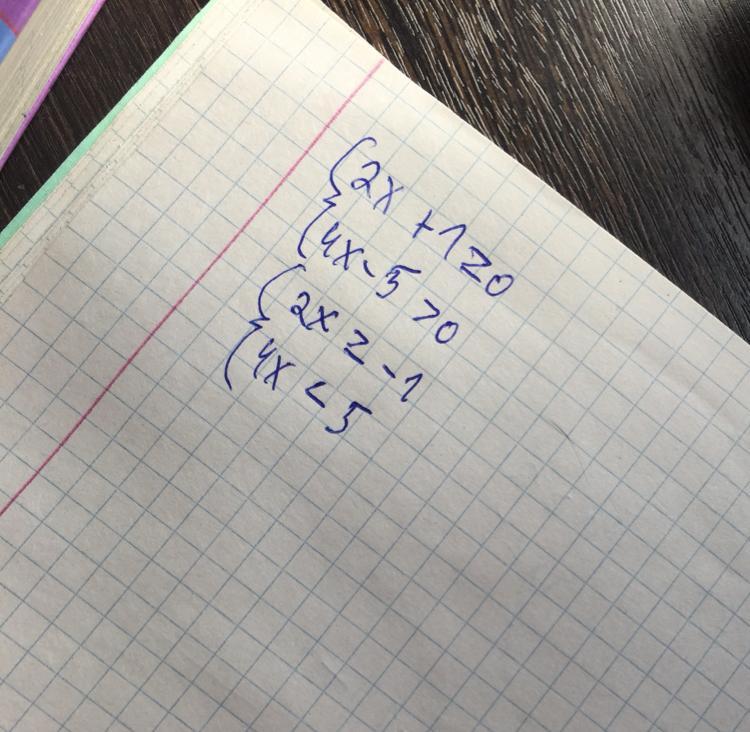 2x + 1 ≥ 0
4x - 5 > 0
2x ≥ -1
4x < 5